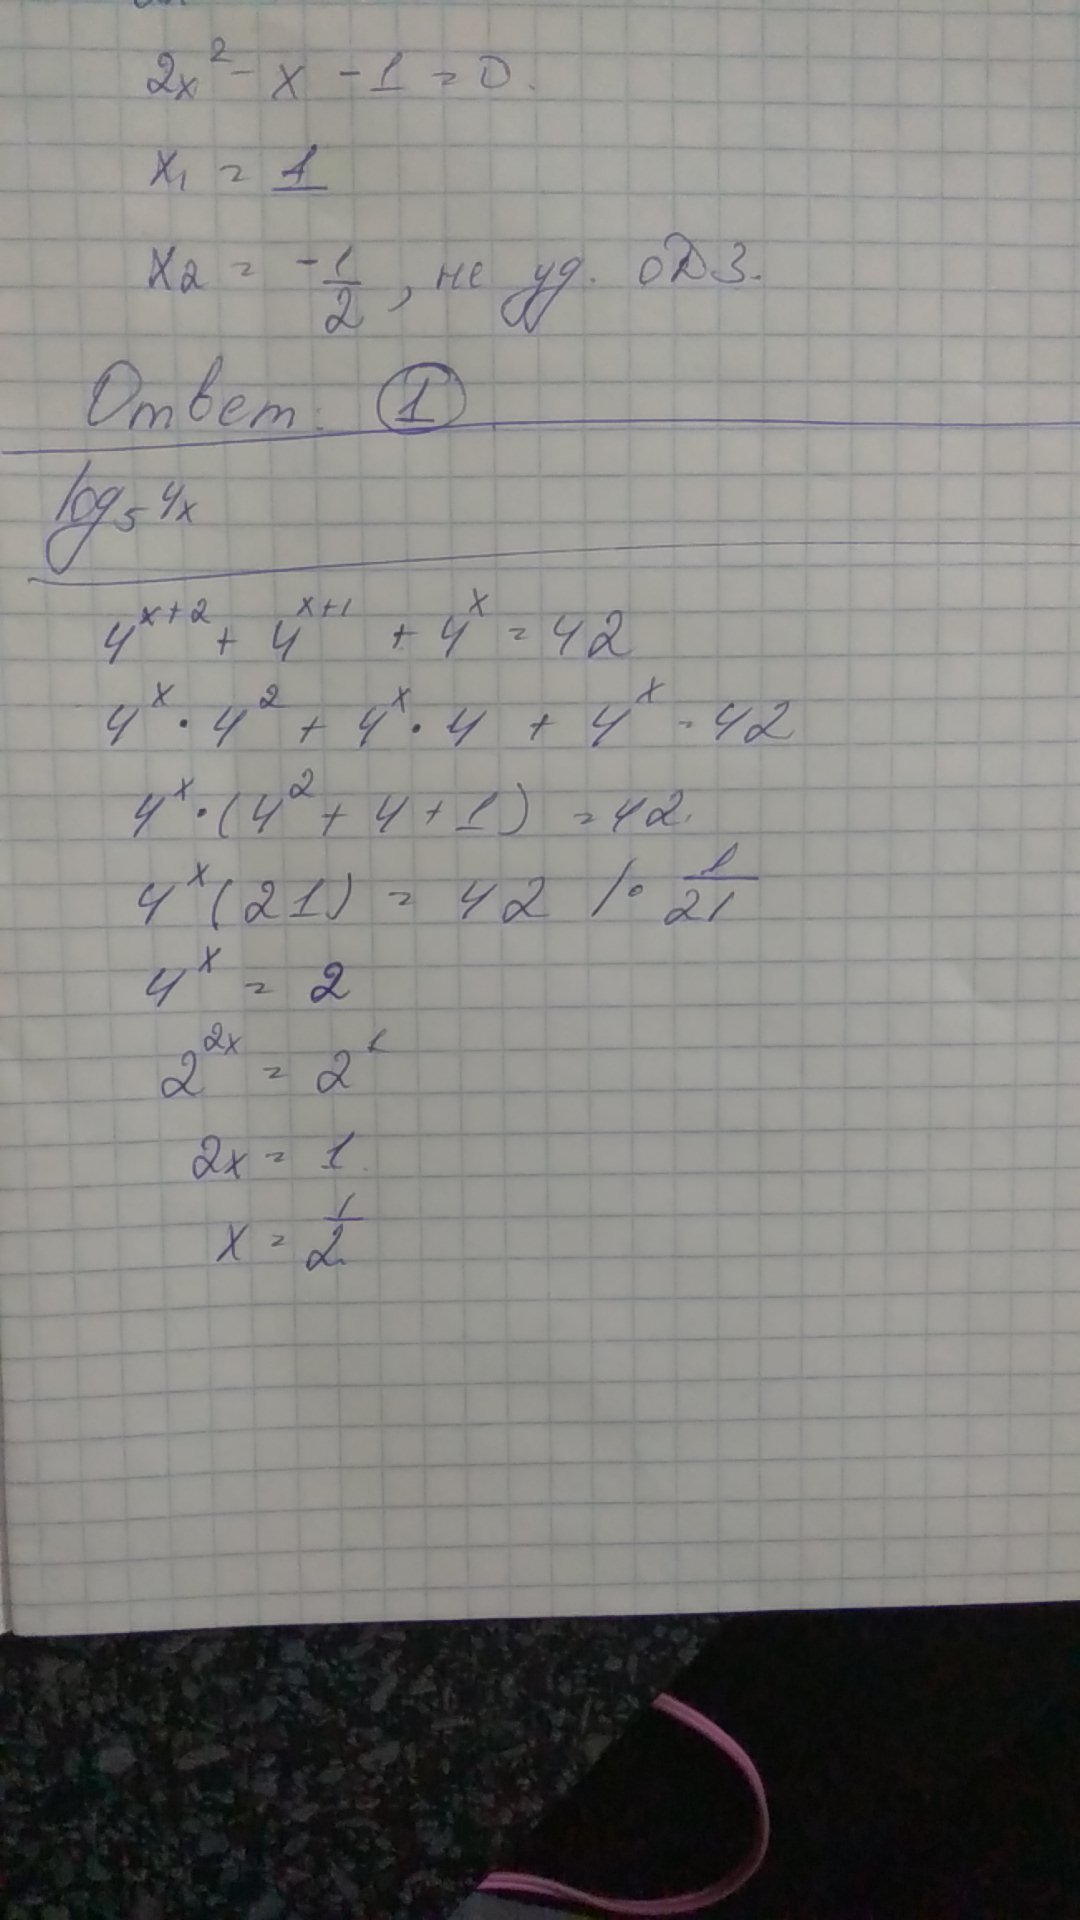 2x² - x - 1 = 0.
x₁ = 1
x₂ = -1/2, не уд. ОДЗ.
Ответ: 1
log₅ 4x
4^(x+2) + 4^(x+1) + 4^x = 42
4^x · 4² + 4^x · 4 + 4^x = 42
4^x · (4² + 4 + 1) = 42.
4^x (21) = 42 / · 1/21
4^x = 2
2^(2x) = 2^1
2x = 1.
x = 1/2.